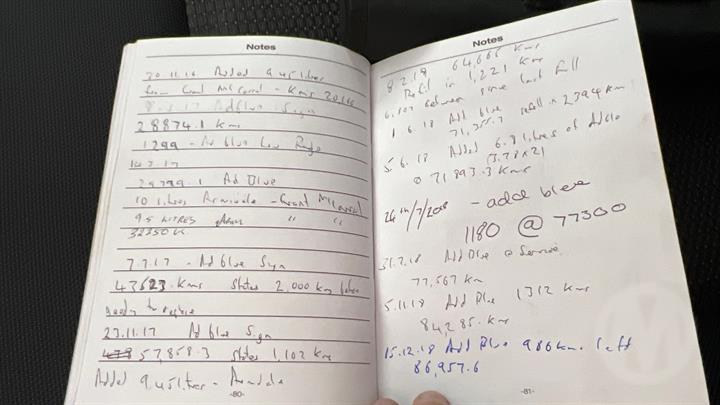 Notes
30.11.16 Added 9.45 litres
from Grand McCarrol - Kms 20116
8.3.17 AdBlue Sign
28874.1 Kms
1299 - Ad blue Low Range
14.3.17
29799.1 Ad Blue
10 litres Armidale - Grant McCarrol
9.5 LITRES " "
32250 K.
7.7.17 - Ad blue Sign
43623. Kms States 2,000 km before
needing to replace
23.11.17 Ad blue Sign
57,858.3 States 1,102 Kms
Added 9.45 litres - Armidale
-80-
Notes
8.2.18 64,665 Kms
Refill in 1,221 Kms
6,807 between since last fill
1.6.18 Add blue
71,355.7 refill in 2394 Km
5.6.18 Added 6.8 litres of Adblue
(3.78x2)
@ 71893.3 Kms
26th/7/2018 - add blue
1180 @ 77300
31.7.18 Add Blue @ Service
77,567 km
5.11.18 Add Blue 1312 Kms
84,285. Kms
15.12.18 Add Blue 986 km left
86,957.6
-81-